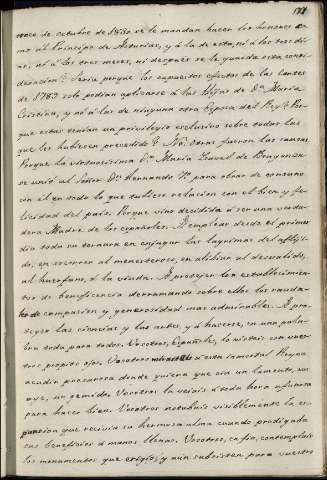 171
trece de octubre de 1830 se le mandan hacer los honores co
mo al Príncipe de Asturias, y á la de esta, ni á los tres dí
as, ni á los tres meses, ni después se le guarda esta consi
deracion? Seria porque los supuestos efectos de las Cortes
de 1789 solo podian aplicarse á las hijas de Dª Maria
Cristina, y no á las de ninguna otra Esposa del Rey? Por
que estas tenian un privilegio exclusivo sobre todas las
que les hubiesen precedido? No, otras fueron las causas.
Porque la virtuosisima Dª Maria Ysavel de Braganza
se unió al Señor Dⁿ Fernando 7º para obrar de consuno
con él en todo lo que tubiese relacion con el bien y fe
licidad del pais. Porque vino decidida á ser una verda
dera Madre de los españoles. A emplear desde el primer
dia toda su ternura en enjugar las lagrimas del afligi
do, en socorrer al menesteroso, en aliviar al desvalido,
al huerfano, á la viuda. A protejer los establecimien
tos de beneficencia derramando sobre ellos los rauda
les de compasion y generosidad mas admirables. A pro
teger las ciencias y las artes, y á hacerse, en una pala
bra toda para todos. Vosotros, Españoles, lo visteis con vues
tros propios ojos. Vosotros á esta inmortal Reyna
acudir presurosa donde quiera que oia un lamento, un
aye, un gemido. Vosotros la veiais á toda hora afanosa
para hacer bien. Vosotros notabais visiblemente la es
pansion que recivia su hermosa alma cuando prodigaba
sus beneficios á manos llenas. Vosotros, en fin, contemplais
los monumentos que erigió, y aun subsisten para vuestro